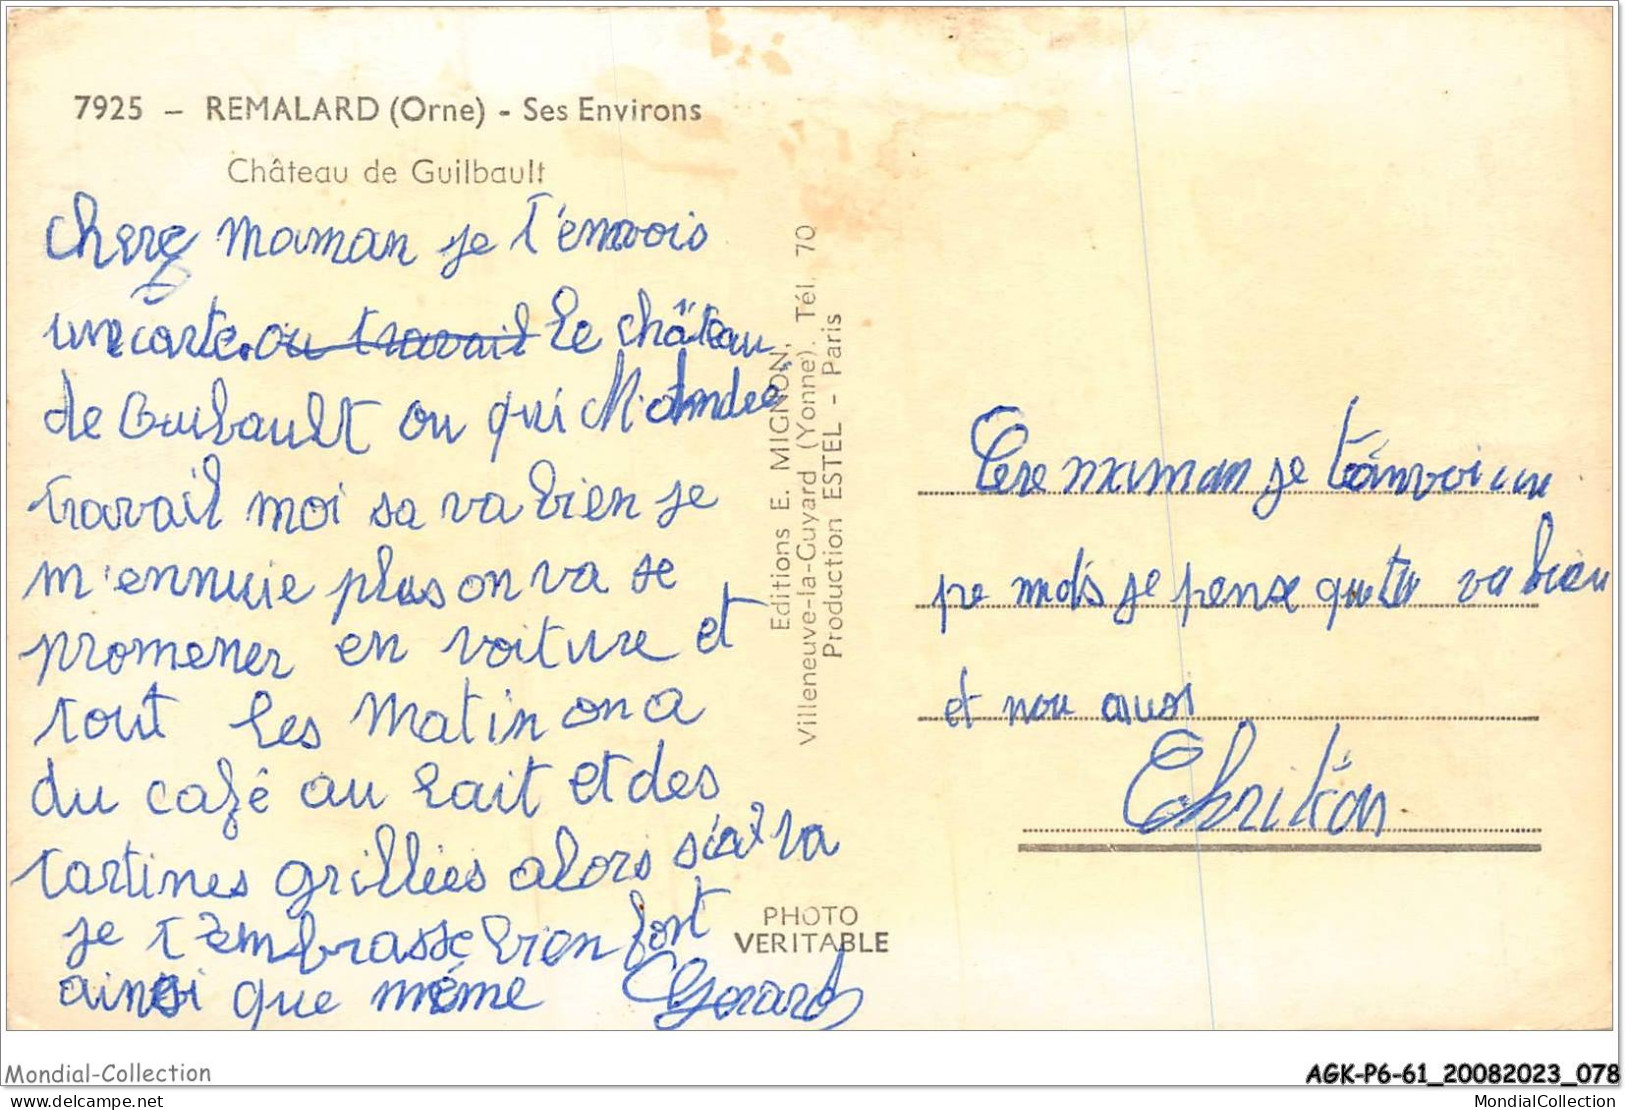 7925 – REMALARD (Orne) - Ses Environs
Château de Guilbault
chere maman je t'envois
une carte. ou travail Le château
de Guilbault ou qui M. André
travail moi sa va bien je
m'ennuie plus on va se
promener en voiture et
tout les matin on a
du café au lait et des
tartines grillées alors si sa va
je t'embrasse bien fort
ainsi que mémé Gérard
Editions E. MIGNON,
Villeneuve-la-Guyard (Yonne). Tél. 70
Production ESTEL – Paris
PHOTO
VERITABLE
maman je un
pe je pense que tu va bien
et nou ausi
Mondial-Collection
AGK-P6-61_20082023_078
delcampe.net
MondialCollection